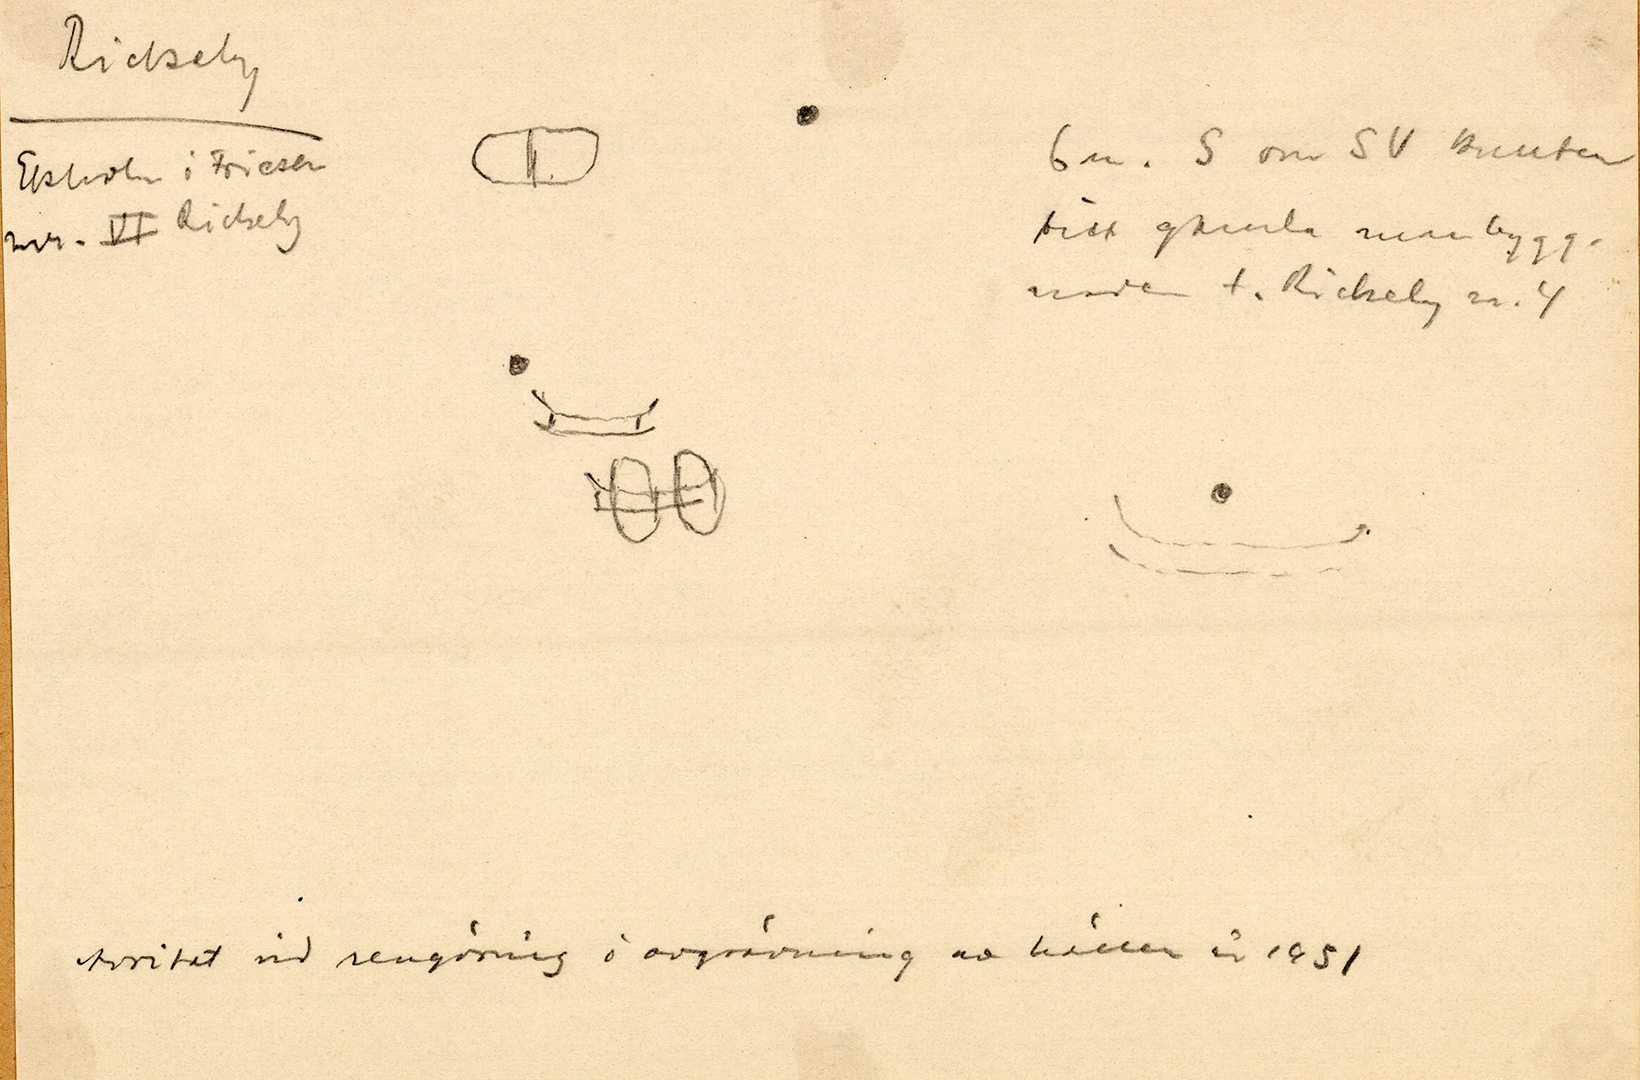 Rickeby
Ekholm i Friesen
nr. VI Rickeby
6 m. S om SV knuten
till gamla manbygg-
naden t. Rickeby nr. 4
Avritat vid rengöring o avgrävning av hällen år 1951